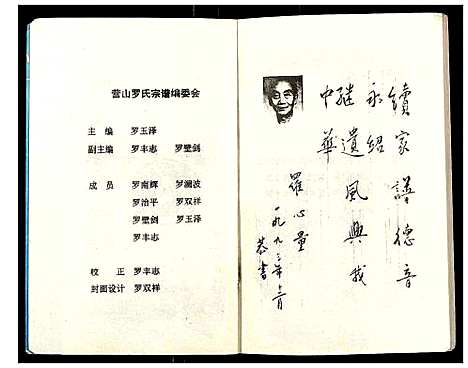 营山罗氏宗谱编委会
主编 罗玉泽
副主编 罗丰志 罗璧剑
成员 罗南辉 罗澜波
罗治平 罗双祥
罗璧剑 罗玉泽
罗丰志
校正 罗丰志
封面设计 罗双祥
續家譜德音
永紹風典我
继遺
中華
羅心量
一九九三年
恭書